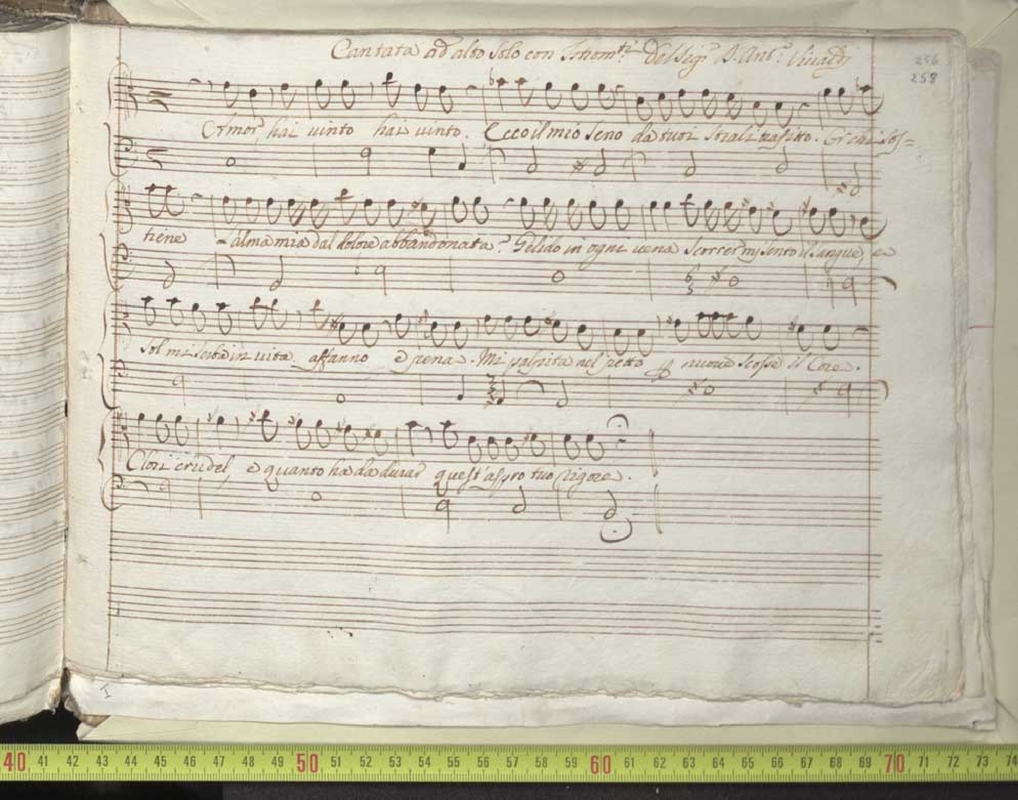 Cantata ad alto Solo con Istrom.ti Del Sig.r D. Ant.o Vivaldi
256
258
Amor hai vinto hai vinto. Ecco il mio seno da tuoi strali trafitto. Or chi sos=
tiene l'alma mia dal dolore abbandonata? Gelido in ogni vena scorrer mi sento il sangue, e
sol mi serba in vita affanno e pena. Mi palpita nel petto nuove scosse il Core.
Clori crudel e quanto ha da durar quest'aspro tuo rigore.
I
40 41 42 43 44 45 46 47 48 49 50 51 52 53 54 55 56 57 58 59 60 61 62 63 64 65 66 67 68 69 70 71 72 73 74